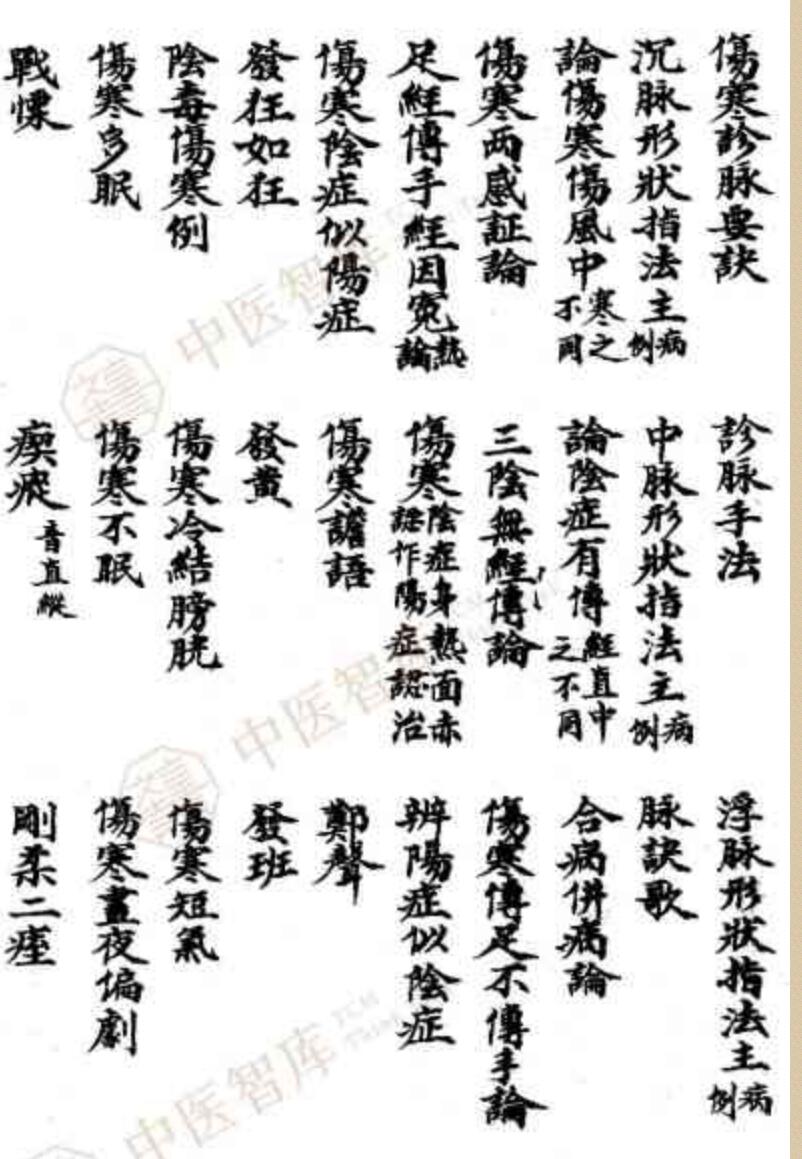 傷寒診脉要訣
診脉手法
浮脉形狀指法主病例
沉脉形狀指法主病例
中脉形狀指法主病例
脉訣歌
論傷寒傷風中寒之不同
論陰症有傳經直中之不同
合病併病論
傷寒两感証論
三陰無經傳論
傷寒傳足不傳手論
足經傳手經因冤熱論
傷寒陰症身熱面赤認作陽症認治
辨陽症似陰症
傷寒陰症似陽症
傷寒譫語
鄭聲
發狂如狂
發黄
發班
陰毒傷寒例
傷寒冷結膀胱
傷寒短氣
傷寒多眠
傷寒不眠
傷寒晝夜偏劇
戰慄
瘈瘲 音直縱
剛柔二痓
中医智库
中医智库
中医智库